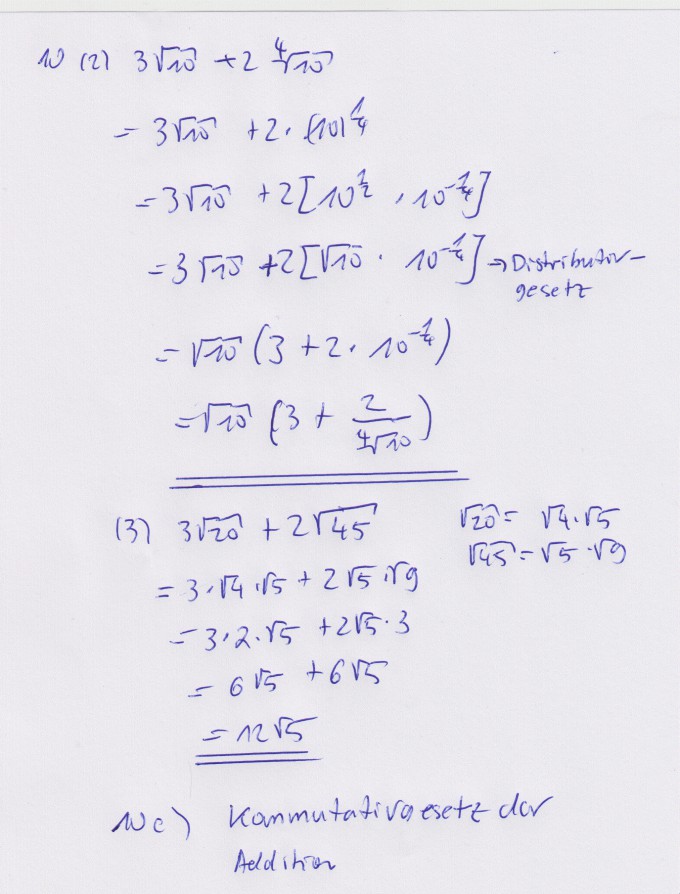 10 (2) 3√10 + 2 ∜10
= 3√10 + 2 · (10)^1/4
= 3√10 + 2[10^1/2 · 10^-1/4]
= 3√10 + 2[√10 · 10^-1/4] → Distributiv-
gesetz
= √10 (3 + 2 · 10^-1/4)
= √10 (3 + 2/∜10)
(3) 3√20 + 2√45 √20 = √4 · √5
= 3 · √4 · √5 + 2√5 · √9 √45 = √5 · √9
= 3 · 2 · √5 + 2√5 · 3
= 6√5 + 6√5
= 12√5
10 c) Kommutativgesetz der
Addition